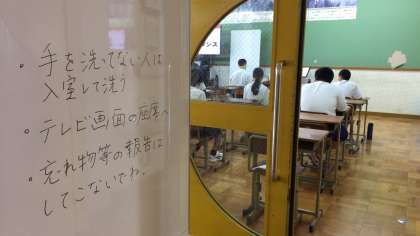 ・手を洗ってない人は
入室して洗う
・テレビ画面の座席へ
・忘れ物等の報告は
してこないでね。